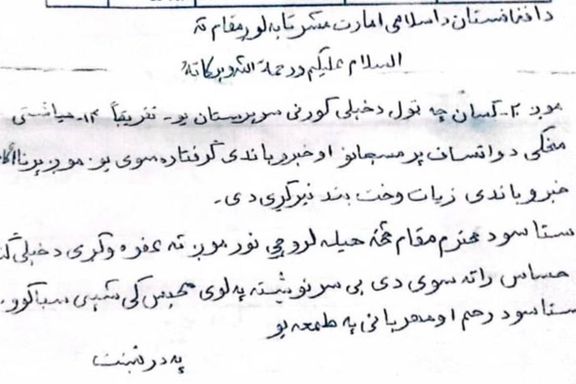 د افغانستان د اسلامی امارت مشرتابه لوړ مقام ته
السلام علیکم ورحمة الله وبرکاته
موږ ۲۰ کسان چه ټول د خپلی کورنی سرپرستان یو۔ تقریباً ۱۲۔ میاشتی
مخکی د واتساف پر مسجانو او خبرو باندی گرفتاره سوی یو. موږ پر نااگا
خبرو باندی زیات وخت بند تیر کړی دی۔
ستاسو د محترم مقام څخه هیله لرو چی نور موږ ته عفوه وکړی د خپلی
حساس راته سوی دی بی سرنوشیته په لوی محبس کی شپی سبا کوو.
ستاسود رحم او مهربانی په طمعه یو
په درنښت